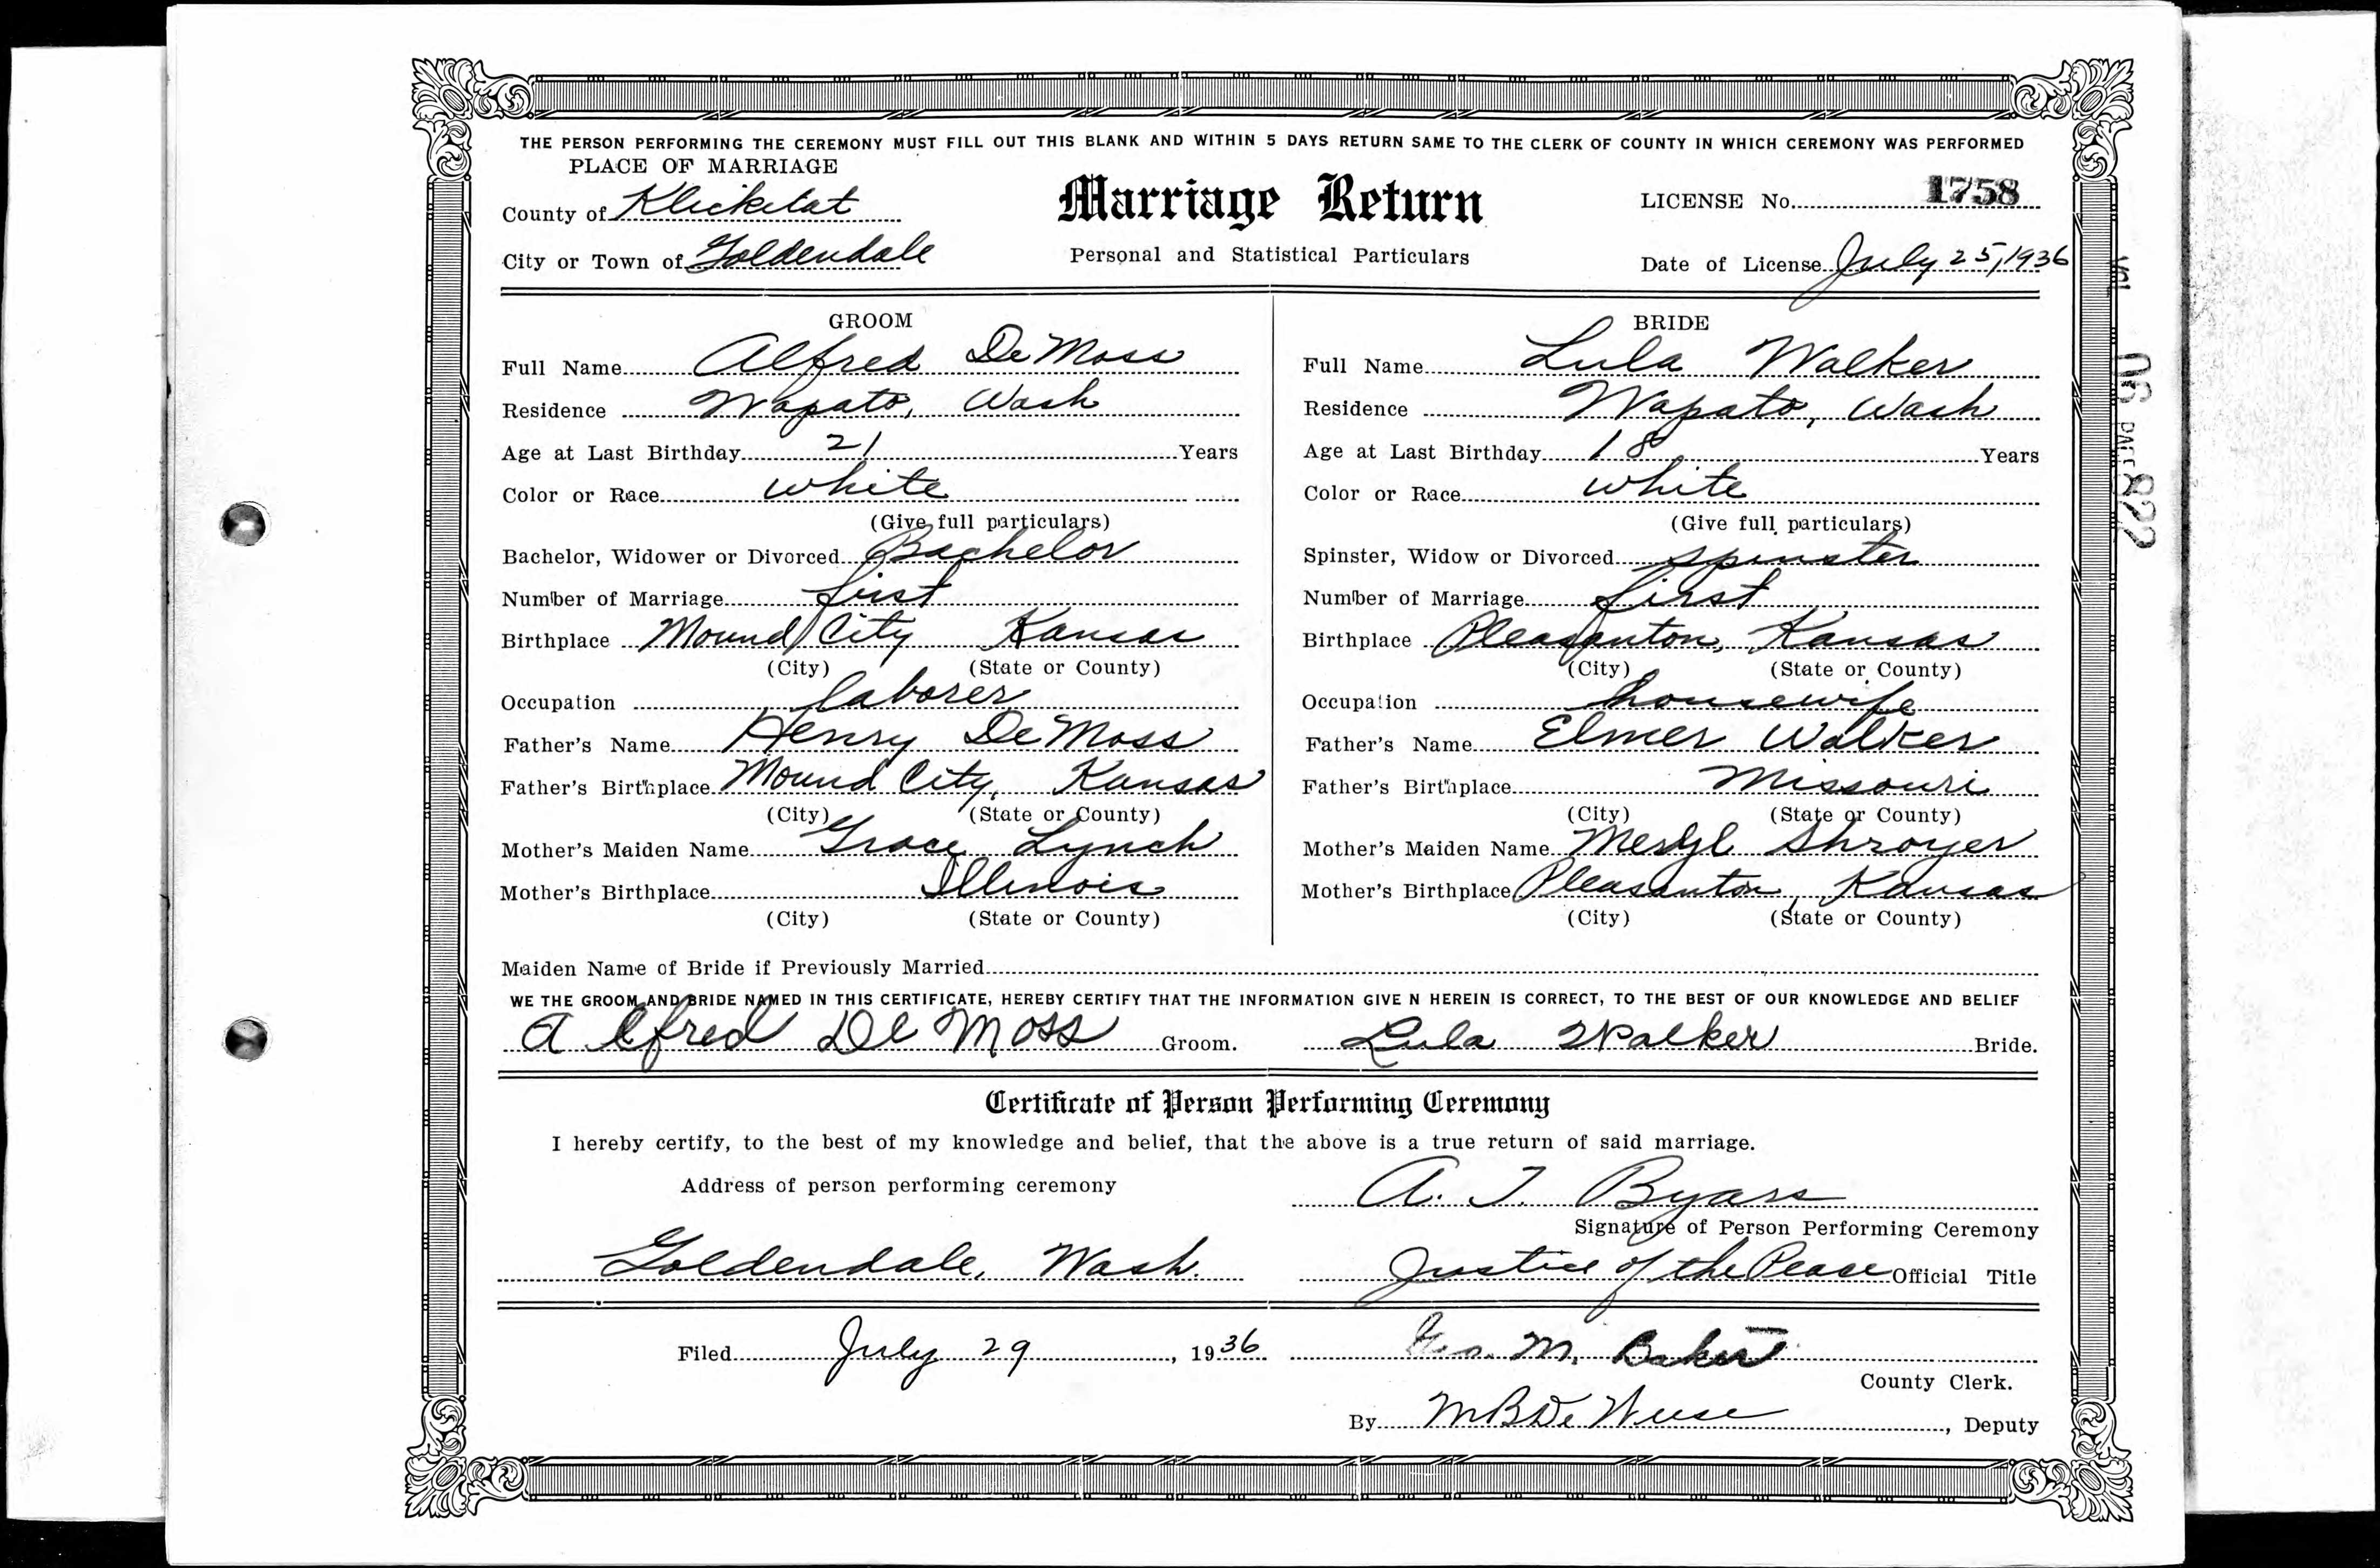 THE PERSON PERFORMING THE CEREMONY MUST FILL OUT THIS BLANK AND WITHIN 5 DAYS RETURN SAME TO THE CLERK OF COUNTY IN WHICH CEREMONY WAS PERFORMED
PLACE OF MARRIAGE
County of Klickitat
City or Town of Goldendale
Marriage Return
Personal and Statistical Particulars
LICENSE No. 1758
Date of License July 25, 1936
GROOM
Full Name Alfred DeMoss
Residence Wapato, Wash
Age at Last Birthday 21 Years
Color or Race white
(Give full particulars)
Bachelor, Widower or Divorced Bachelor
Number of Marriage first
Birthplace Mound City Kansas
(City) (State or County)
Occupation laborer
Father's Name Henry DeMoss
Father's Birthplace Mound City, Kansas
(City) (State or County)
Mother's Maiden Name Grace Lynch
Mother's Birthplace Illinois
(City) (State or County)
BRIDE
Full Name Lula Walker
Residence Wapato, Wash
Age at Last Birthday 18 Years
Color or Race white
(Give full particulars)
Spinster, Widow or Divorced spinster
Number of Marriage first
Birthplace Pleasanton, Kansas
(City) (State or County)
Occupation housewife
Father's Name Elmer Walker
Father's Birthplace Missouri
(City) (State or County)
Mother's Maiden Name Shroyer
Mother's Birthplace Pleasanton, Kansas
(City) (State or County)
Maiden Name of Bride if Previously Married
WE THE GROOM AND BRIDE NAMED IN THIS CERTIFICATE, HEREBY CERTIFY THAT THE INFORMATION GIVE N HEREIN IS CORRECT, TO THE BEST OF OUR KNOWLEDGE AND BELIEF
Alfred De Moss Groom. Lula Walker Bride.
Certificate of Person Performing Ceremony
I hereby certify, to the best of my knowledge and belief, that the above is a true return of said marriage.
Address of person performing ceremony
A. T. Byars
Signature of Person Performing Ceremony
Goldendale, Wash. Justice of the Peace Official Title
Filed July 29, 1936
M. Baker
County Clerk.
By , Deputy
VOL 06 PAGE 822